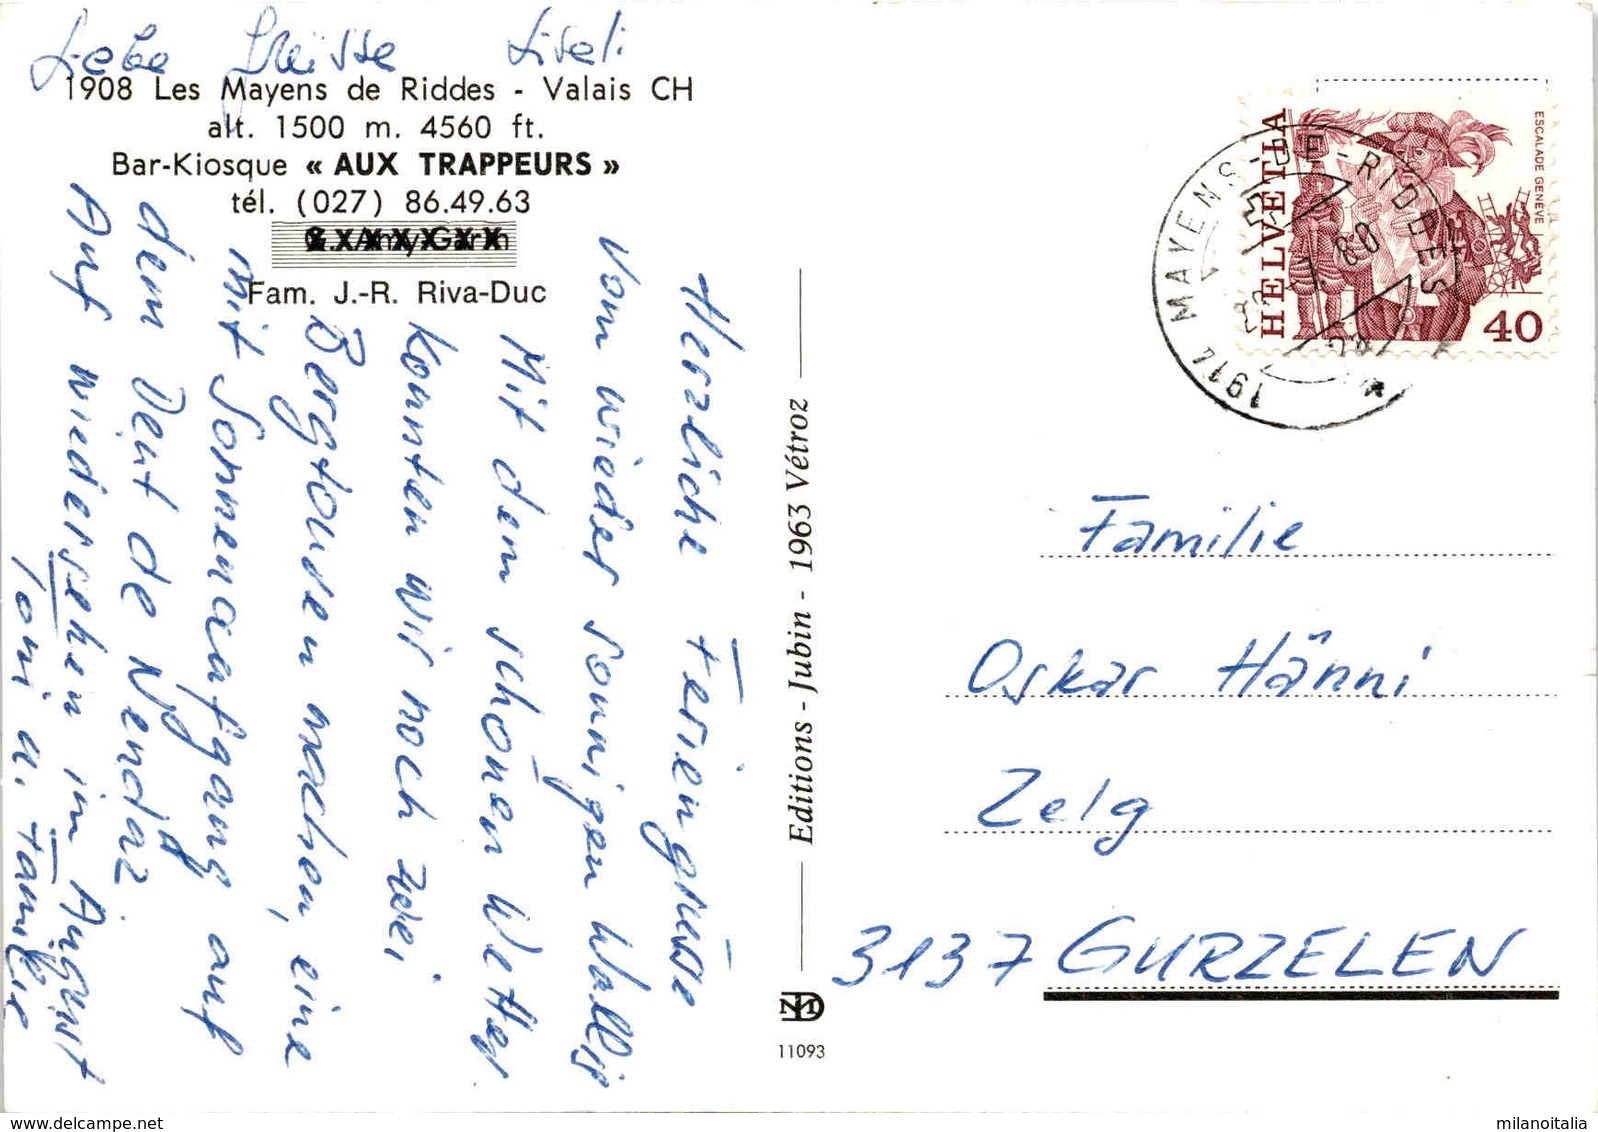 Liebe Grüsse Liseli
1908 Les Mayens de Riddes - Valais CH
alt. 1500 m. 4560 ft.
Bar-Kiosque « AUX TRAPPEURS »
tél. (027) 86.49.63
Fam. J.-R. Riva-Duc
Herzliche Feriengrüsse
vom wieder sonnigen Wallis
Mit dem schönen Wetter
konnten wir noch zwei
Bergtouren machen, eine
mit Sonnenaufgang auf
dem Dent de Nendaz.
Auf wiedersehen im August
Toni u. Familie
Editions - Jubin - 1963 Vétroz
11093
HELVETIA
ESCALADE GENÈVE
40
1914 MAYENS-DE-RIDDES
80
Familie
Oskar Hänni
Zelg
3137 GURZELEN
milanoitalia